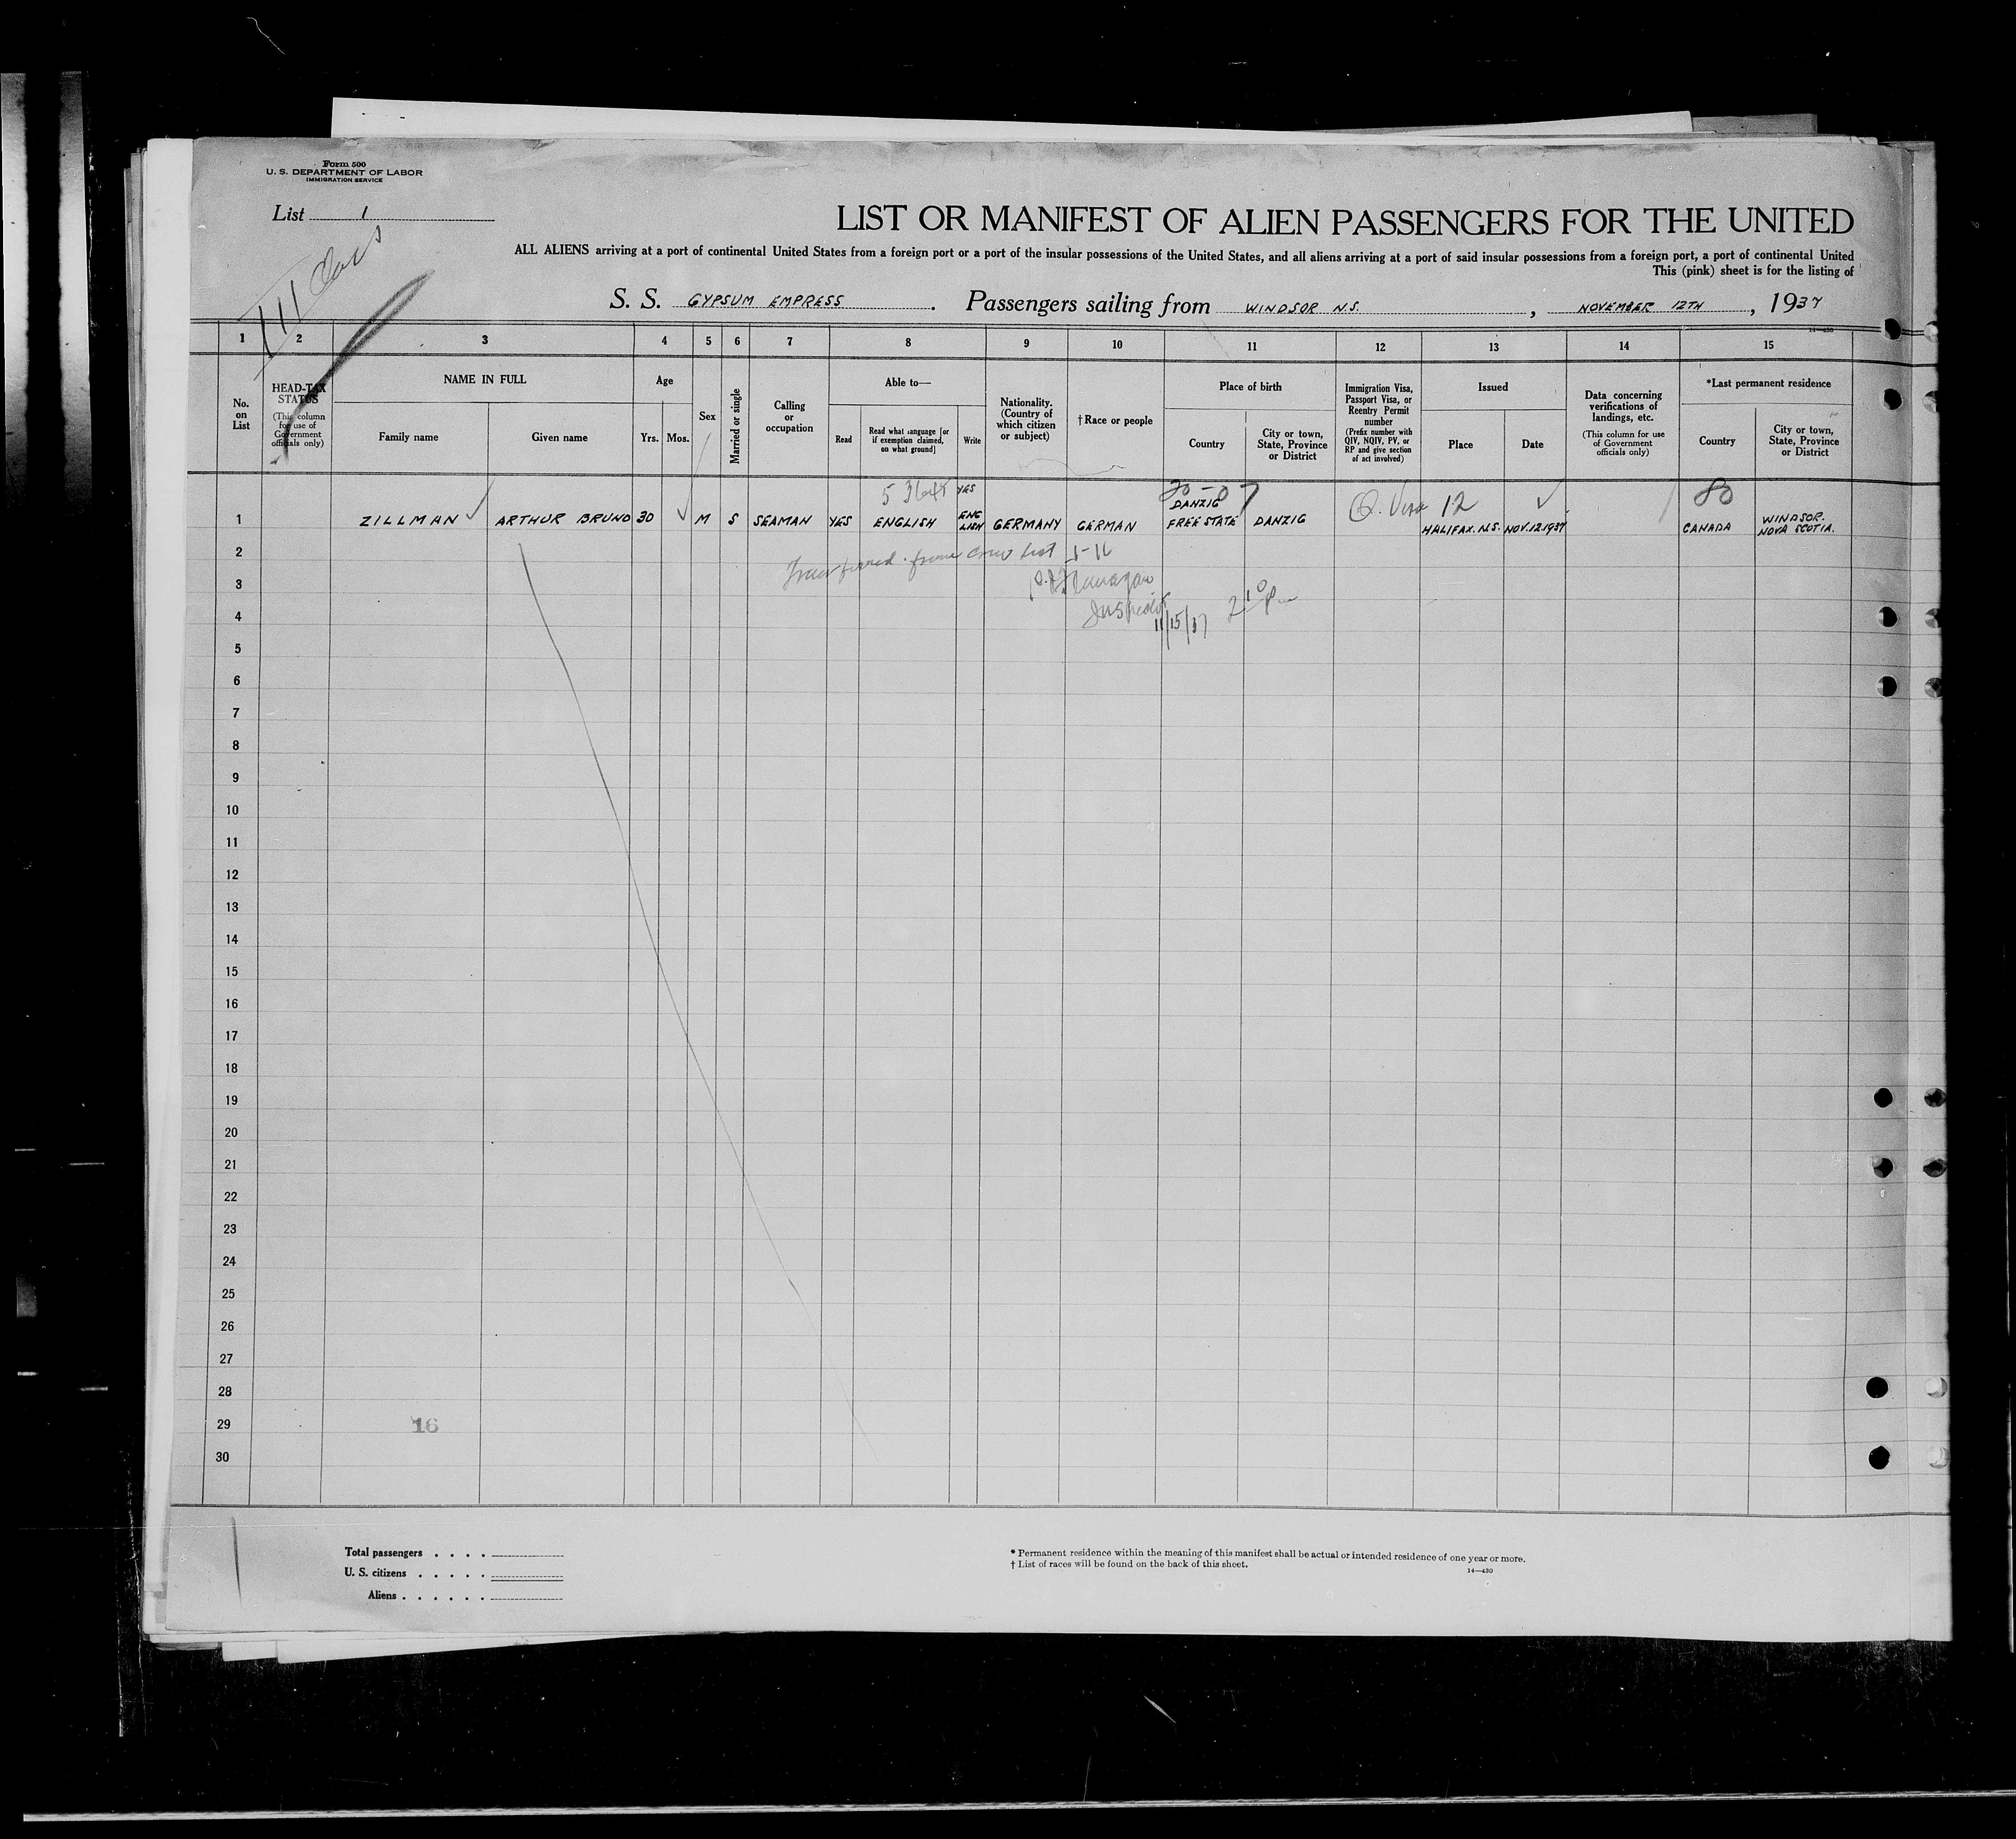 Form 500
U. S. DEPARTMENT OF LABOR
IMMIGRATION SERVICE
List 1
LIST OR MANIFEST OF ALIEN PASSENGERS FOR THE UNITED
ALL ALIENS arriving at a port of continental United States from a foreign port or a port of the insular possessions of the United States, and all aliens arriving at a port of said insular possessions from a foreign port, a port of continental United
This (pink) sheet is for the listing of
S. S. GYPSUM EMPRESS. Passengers sailing from WINDSOR N.S., NOVEMBER 12TH, 1937
14—430
1 2 3 4 5 6 7 8 9 10 11 12 13 14 15
No. on List
HEAD-TAX STATUS
(This column for use of Government officials only)
NAME IN FULL
Family name
Given name
Age
Yrs.
Mos.
Sex
Married or single
Calling or occupation
Able to—
Read
Read what language [or if exemption claimed, on what ground]
Write
Nationality. (Country of which citizen or subject)
†Race or people
Place of birth
Country
City or town, State, Province or District
Immigration Visa, Passport Visa, or Reentry Permit number
(Prefix number with QIV, NQIV, PV, or RP and give section of act involved)
Issued
Place
Date
Data concerning verifications of landings, etc.
(This column for use of Government officials only)
*Last permanent residence
Country
City or town, State, Province or District
1 ZILLMAN ARTHUR BRUNO 30 M S SEAMAN YES ENGLISH YES ENGLISH GERMANY GERMAN DANZIG FREE STATE DANZIG Q. Visa 12 HALIFAX. N.S. NOV. 12. 1937 80 CANADA WINDSOR. NOVA SCOTIA.
2 Transferred from Crew List
3
4 Inspector 11/15/37 2 10 pm
5
6
7
8
9
10
11
12
13
14
15
16
17
18
19
20
21
22
23
24
25
26
27
28
29 16
30
Total passengers . . . .
U. S. citizens . . . . .
Aliens . . . . . .
* Permanent residence within the meaning of this manifest shall be actual or intended residence of one year or more.
† List of races will be found on the back of this sheet.
14—430